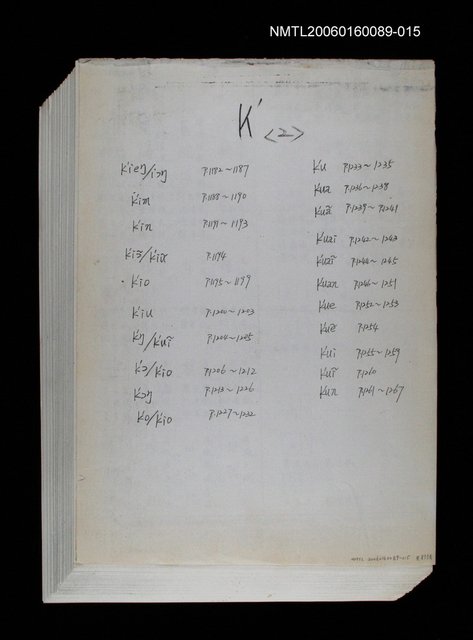 NMTL20060160089-015
K' <2>
K'ieŋ/iɔŋ P.1182~1187
K'im P.1188~1190
K'in P.1191~1193
K'iɔ̃/k'iũ P.1194
K'io P.1195~1199
K'iu P.1200~1203
K'ŋ/k'uĩ P.1204~1205
K'ɔ/k'io P.1206~1212
K'ɔŋ P.1213~1226
K'o/k'io P.1227~1232
K'u P.1233~1235
K'ua P.1236~1238
K'uã P.1239~P.1241
K'uai P.1242~1243
K'uaĩ P.1244~1245
K'uan P.1246~1251
K'ue P.1252~1253
K'uẽ P.1254
K'ui P.1255~1259
K'uĩ P.1260
K'un P.1261~1267
NMTL 20060160089-015